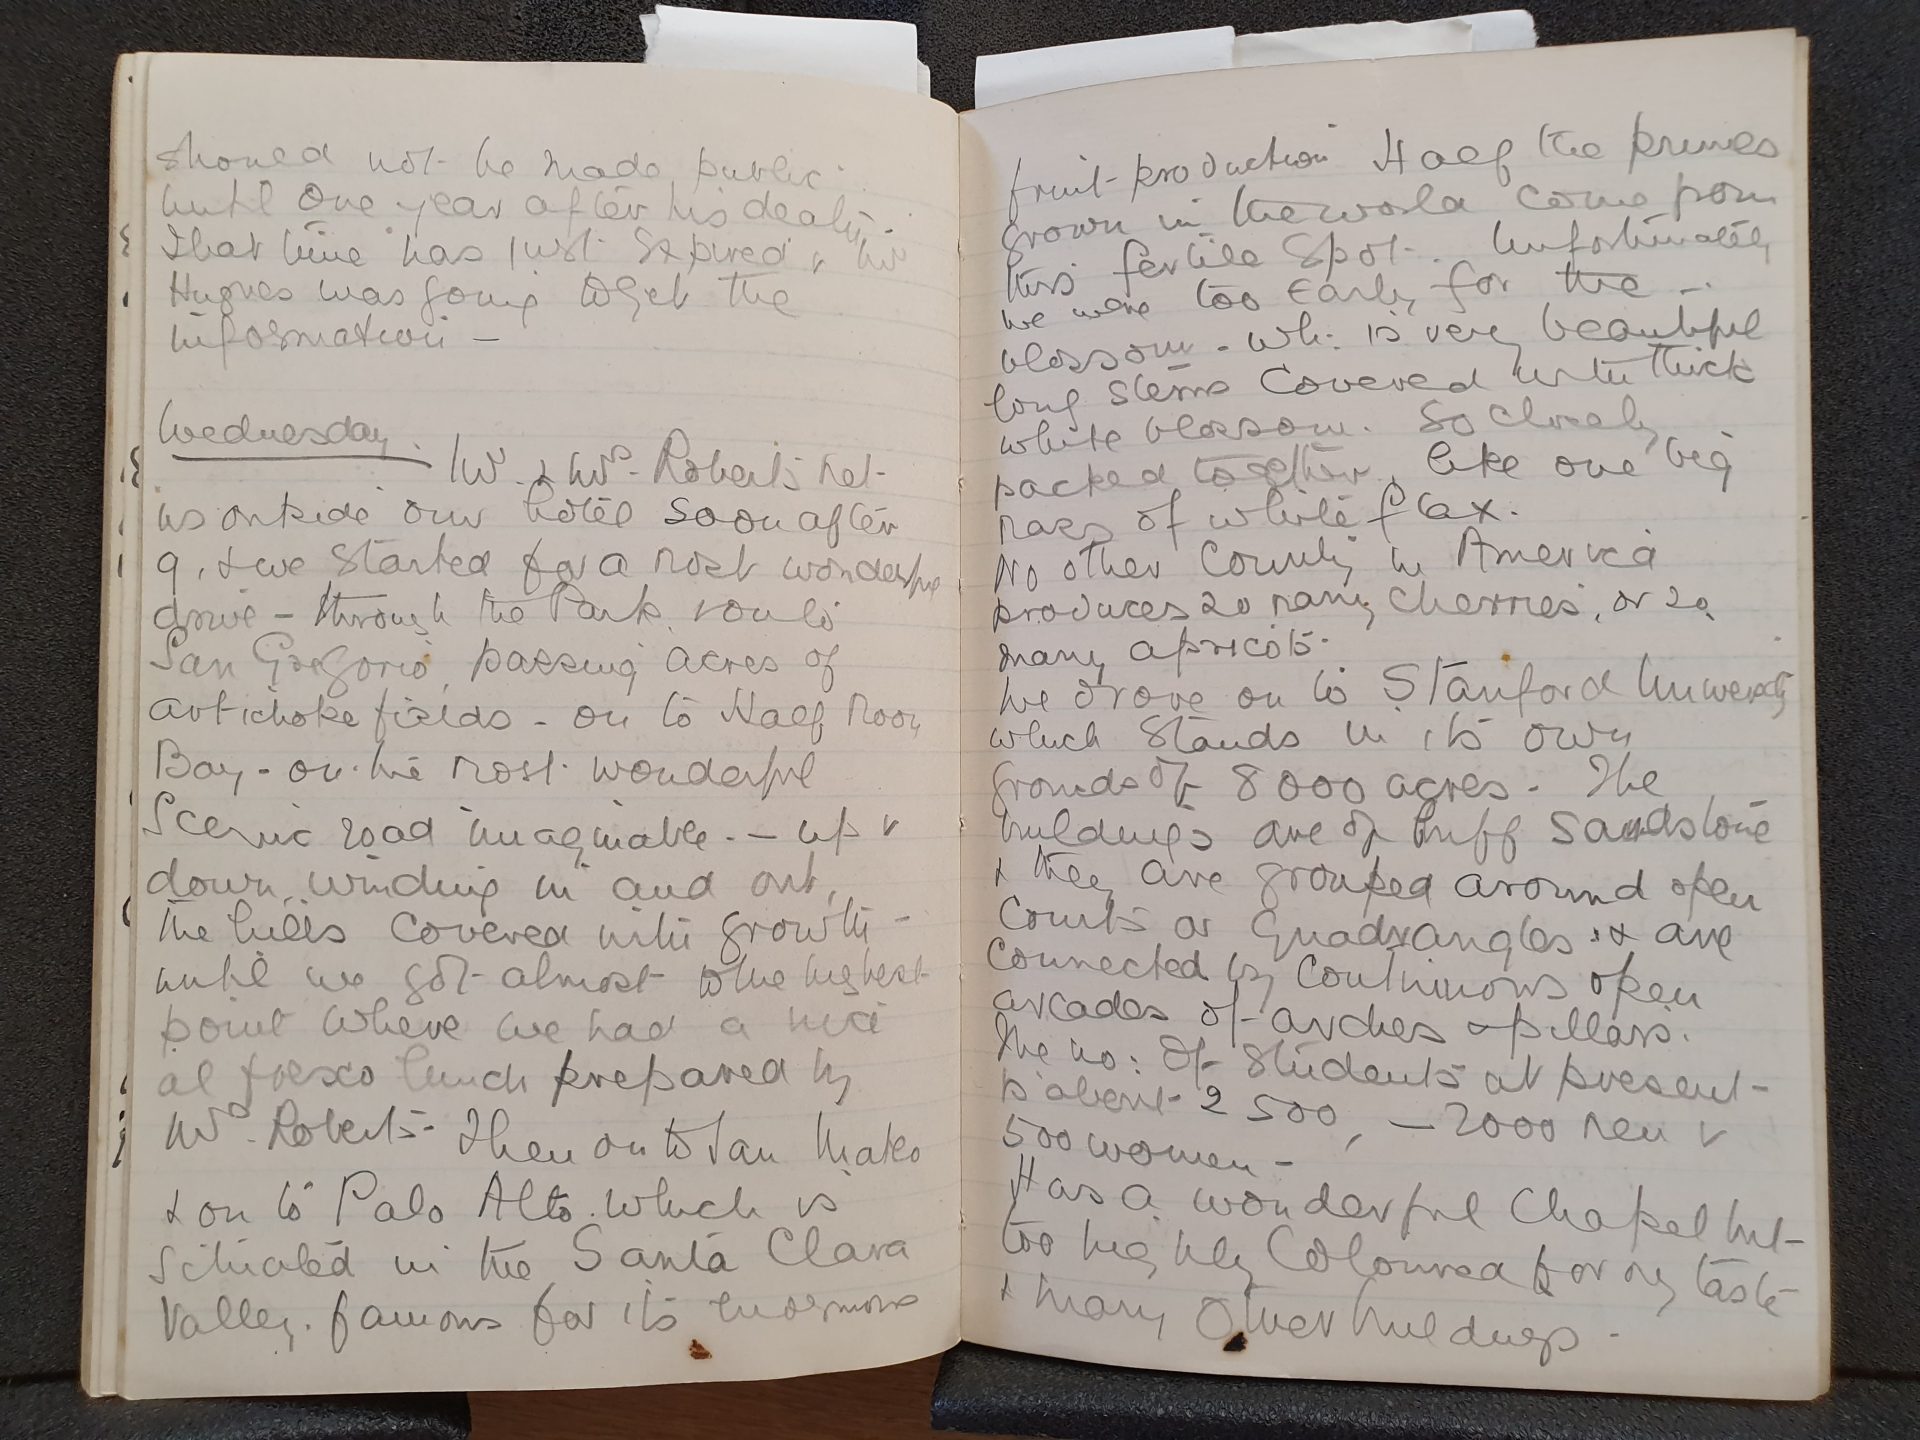 should not be made public
until one year after his death
That time has just expired & Mr
Hughes was going to get the
information —
Wednesday.
Mr. & Mrs. Roberts met
us outside our hotel soon after
9, & we started for a most wonderful
drive — through the Park,
San Gregorio, passing acres of
artichoke fields — on to Half Moon
Bay — on the most wonderful
Scenic road imaginable. — up &
down, winding in and out,
the hills covered with growth —
until we got almost to the highest
point where we had a nice
al fresco lunch prepared by
Mrs. Roberts — Then on to San Mateo
& on to Palo Alto. which is
situated in the Santa Clara
Valley. famous for its enormous
fruit-production Half the prunes
grown in the world come from
this fertile spot. Unfortunately
we were too early for the —
blossom — wh: is very beautiful
long stems covered with thick
white blossom. So closely
packed together, like one big
mass of white flax.
No other County in America
produces so many cherries, or so
many apricots.
We drove on to Stanford University
which stands in its own
grounds of 8000 acres. The
buildings are of buff Sandstone
& they are grouped around open
Courts or Quadrangles & are
connected by continuous open
arcades of arches & pillars.
The no: of students at present
is about 2500, — 2000 men &
500 women —
Has a wonderful Chapel but
too highly coloured for my taste
& many other buildings.